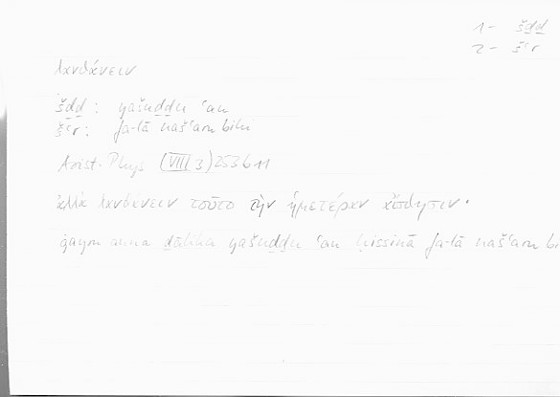 1 - šḏḏ
2 - šʿr
λανθάνειν
šḏḏ : yašuḏḏu ʿan
šʿr : fa-lā našʿaru bihi
Arist. Phys (VIII 3) 253b11
ἀλλὰ λανθάνειν τοῦτο τὴν ἡμετέραν αἴσθησιν·
ġayra anna ḏālika yašuḏḏu ʿan ḥissinā fa-lā našʿaru bi